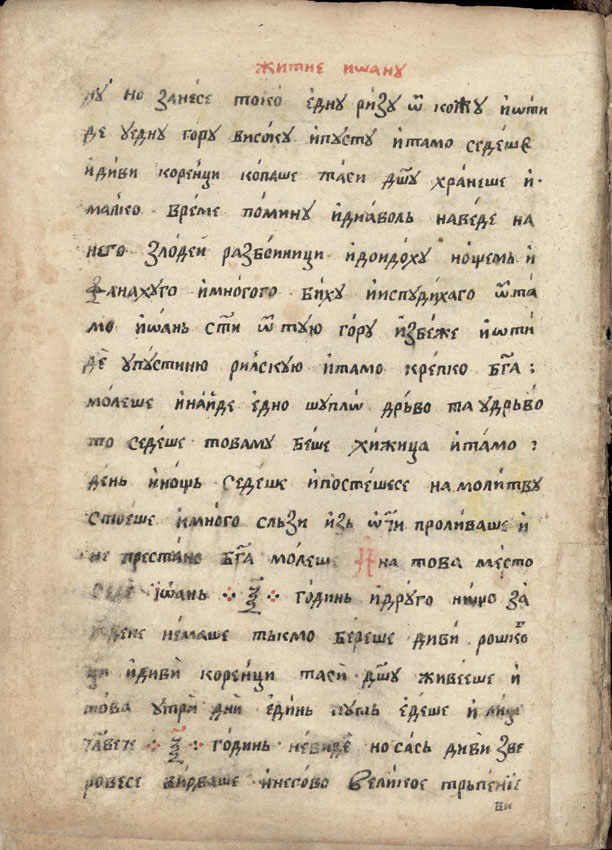 житие иѡану
ну но занесе токо едну ризу ѿ кожу и ѿти
де у едну гору високу и пусту и тамо седеше
и диви коренци копаше та си дш҃у хранеше и
малко време помину и диаволь наведе на
него злодеи разбоиници и доидоху нощемь и
фанаху го и много го биху и испудиха го ѿ та
мо иѡань ст҃и ѿ тую гору избеже и ѿти
де у пустиню рилскую и тамо крепко бг҃а :
молеше и наиде едно шуплѡ дрьво та у дрьво
то седеше това му беше хижица и тамо :
день и нощь седеше и постешесе на молитву
стоеше и много сльзи изь ѡчи проливаше и
не престано бг҃а молеше И на това место
седе іѡань ⁘ ѯ҃ ⁘ годинь и друго нищо за
едене немаше тькмо береше диви рошко
ци и диви коренци та си дш҃у живееше и
това у три дни единь путь едеше и лице
чл҃вечe ⁘ ѯ҃ ⁘ годинь не виде но сась диви зве
ровесе вирваше и негово великое трьпение